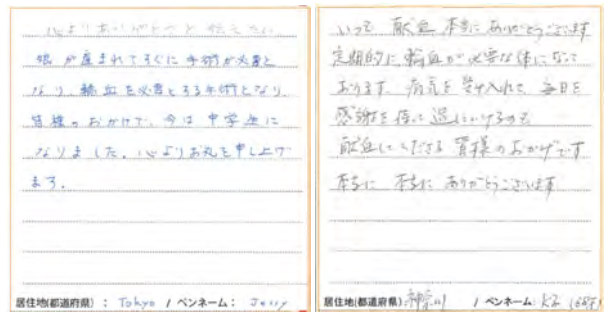 心よりありがとうと伝えたい
娘が産まれてすぐに手術が必要と
なり、輸血を必要とする手術となり、
皆様のおかげで、今は中学生に
なりました。心よりお礼を申し上げ
ます。
居住地(都道府県)： Tokyo / ペンネーム： Jessy
いつも 献血 本当に ありがとうございます
定期的に輸血が必要な体になって
おります。病気を受け入れて 毎日を
感謝を 過ごしいけるのも
献血してくださる 皆様のおかげです
本当に 本当に ありがとうございます
居住地(都道府県)：神奈川 / ペンネーム：